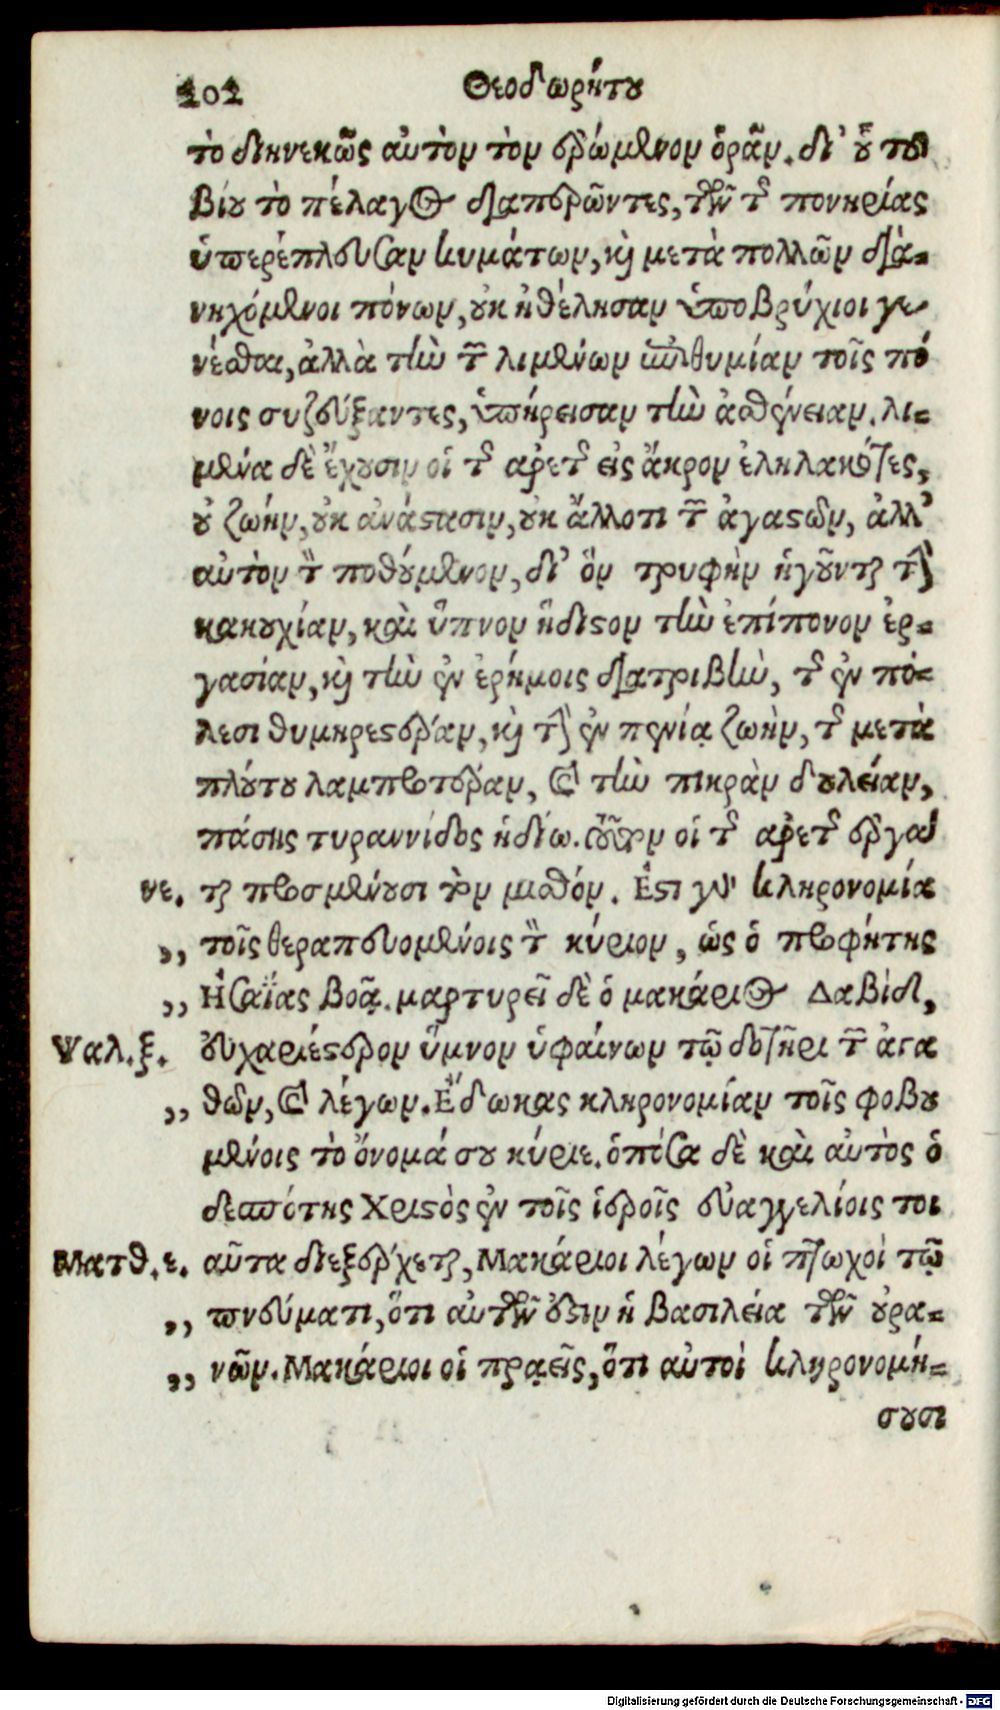 202 Θεοδωρήτου
τὸ διηνεκῶς αὐτὸν τὸν ἐρώμενον ὁρᾶν. δι' οὗ τοῦ
βίου τὸ πέλαγος διαπερῶντες, τῶν τῆς πονηρίας
ὑπερέπλευσαν κυμάτων, καὶ μετὰ πολλῶν δια-
νηχόμενοι πόνων, οὐκ ἠθέλησαν ὑποβρύχιοι γε
νέσθαι, ἀλλὰ τὴν τῶν λιμένων ἐπιθυμίαν τοῖς πό
νοις συζεύξαντες, ὑπήρεισαν τὴν ἀσθένειαν. λι-
μένα δὲ ἔχουσιν οἱ τῆς ἀρετῆς εἰς ἄκρον ἐληλακότες,
οὐ ζωὴν, οὐκ ἀνάστασιν, οὐκ ἄλλοτι τῶν ἀγαστῶν, ἀλλ'
αὐτὸν τὸν ποθούμενον, δι' ὃν τρυφὴν ἡγοῦνται τὴν
κακουχίαν, καὶ ὕπνον ἥδιστον τὴν ἐπίπονον ἐρ-
γασίαν, καὶ τὴν ἐν ἐρήμοις διατριβὴν, τῆς ἐν πό-
λεσι θυμηρεστέραν, καὶ τὴν ἐν πενίᾳ ζωὴν, τῆς μετὰ
πλούτου λαμπροτέραν, καὶ τὴν πικρὰν δουλείαν,
πάσης τυραννίδος ἡδίω. τοῦτον οἱ τῆς ἀρετῆς ἐργά
νε. ται προσμένουσι τὸν μισθόν. Ἔστι γὰρ κληρονομία
,, τοῖς θεραπευομένοις τὸν κύριον, ὡς ὁ προφήτης
,, Ἡσαΐας βοᾷ. μαρτυρεῖ δὲ ὁ μακάριος Δαβὶδ,
Ψαλ. ξ. εὐχαριέστερον ὕμνον ὑφαίνων τῷ δοτῆρι τῶν ἀγα
,, θῶν, καὶ λέγων. Ἔδωκας κληρονομίαν τοῖς φοβου
μένοις τὸ ὄνομά σου κύριε. ὁπόσα δὲ καὶ αὐτὸς ὁ
δεσπότης Χριστὸς ἐν τοῖς ἱεροῖς εὐαγγελίοις τοι
Ματθ. ε. αῦτα διεξέρχεται, Μακάριοι λέγων οἱ πτωχοὶ τῷ
,, πνεύματι, ὅτι αὐτῶν ἐστιν ἡ βασιλεία τῶν οὐρα-
,, νῶν. Μακάριοι οἱ πραεῖς, ὅτι αὐτοὶ κληρονομή-
σουσι
Digitalisierung gefördert durch die Deutsche Forschungsgemeinschaft - DFG